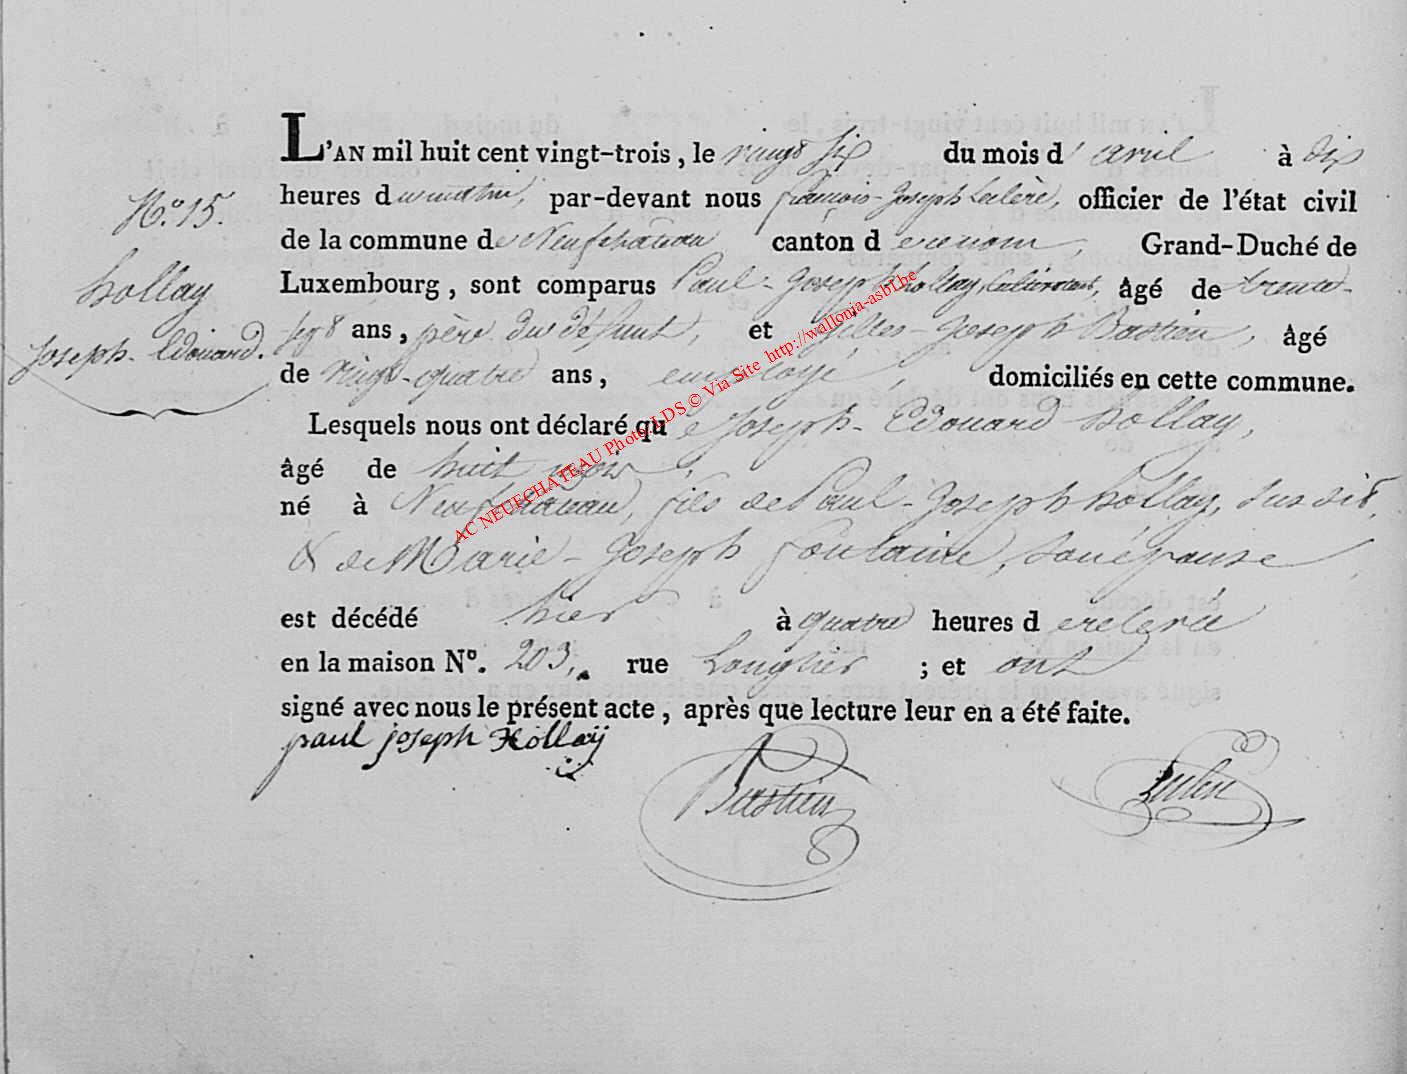 L'AN mil huit cent vingt-trois, le vingt six du mois d'avril à dix
N.o 15.
heures du matin, par-devant nous françois-Joseph Leclère, officier de l'état civil
de la commune de Neufchateau canton d Grand-Duché de
hollay
Luxembourg, sont comparus Paul-Joseph hollay, âgé de trente-
Joseph-Edouard.
sept ans, père du défunt, et Gilles-Joseph Bastien, âgé
de vingt-quatre ans, employé, domiciliés en cette commune.
Lesquels nous ont déclaré que Joseph-Edouard hollay,
âgé de huit mois,
né à Neufchateau, fils de Paul-Joseph hollay, susdit,
& de Marie-Joseph fontaine, son épouse,
est décédé hier à quatre heures de relevée
en la maison No. 203, rue Longlier ; et ont
signé avec nous le présent acte, après que lecture leur en a été faite.
paul joseph Hollaÿ
Bastien
AC NEUFCHATEAU Photo. LDS © Via Site http://wallonia-asbl.be